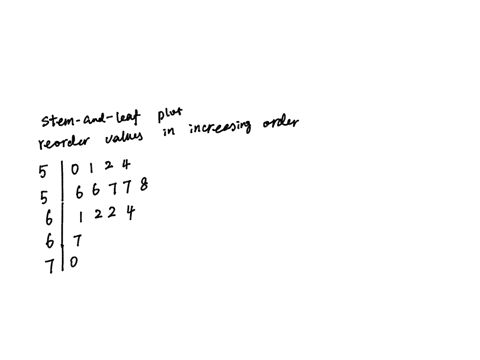 stem-and-leaf plot
reorder values in increasing order
5 | 0 1 2 4
5 | 6 6 7 7 8
6 | 1 2 2 4
6 | 7
7 | 0